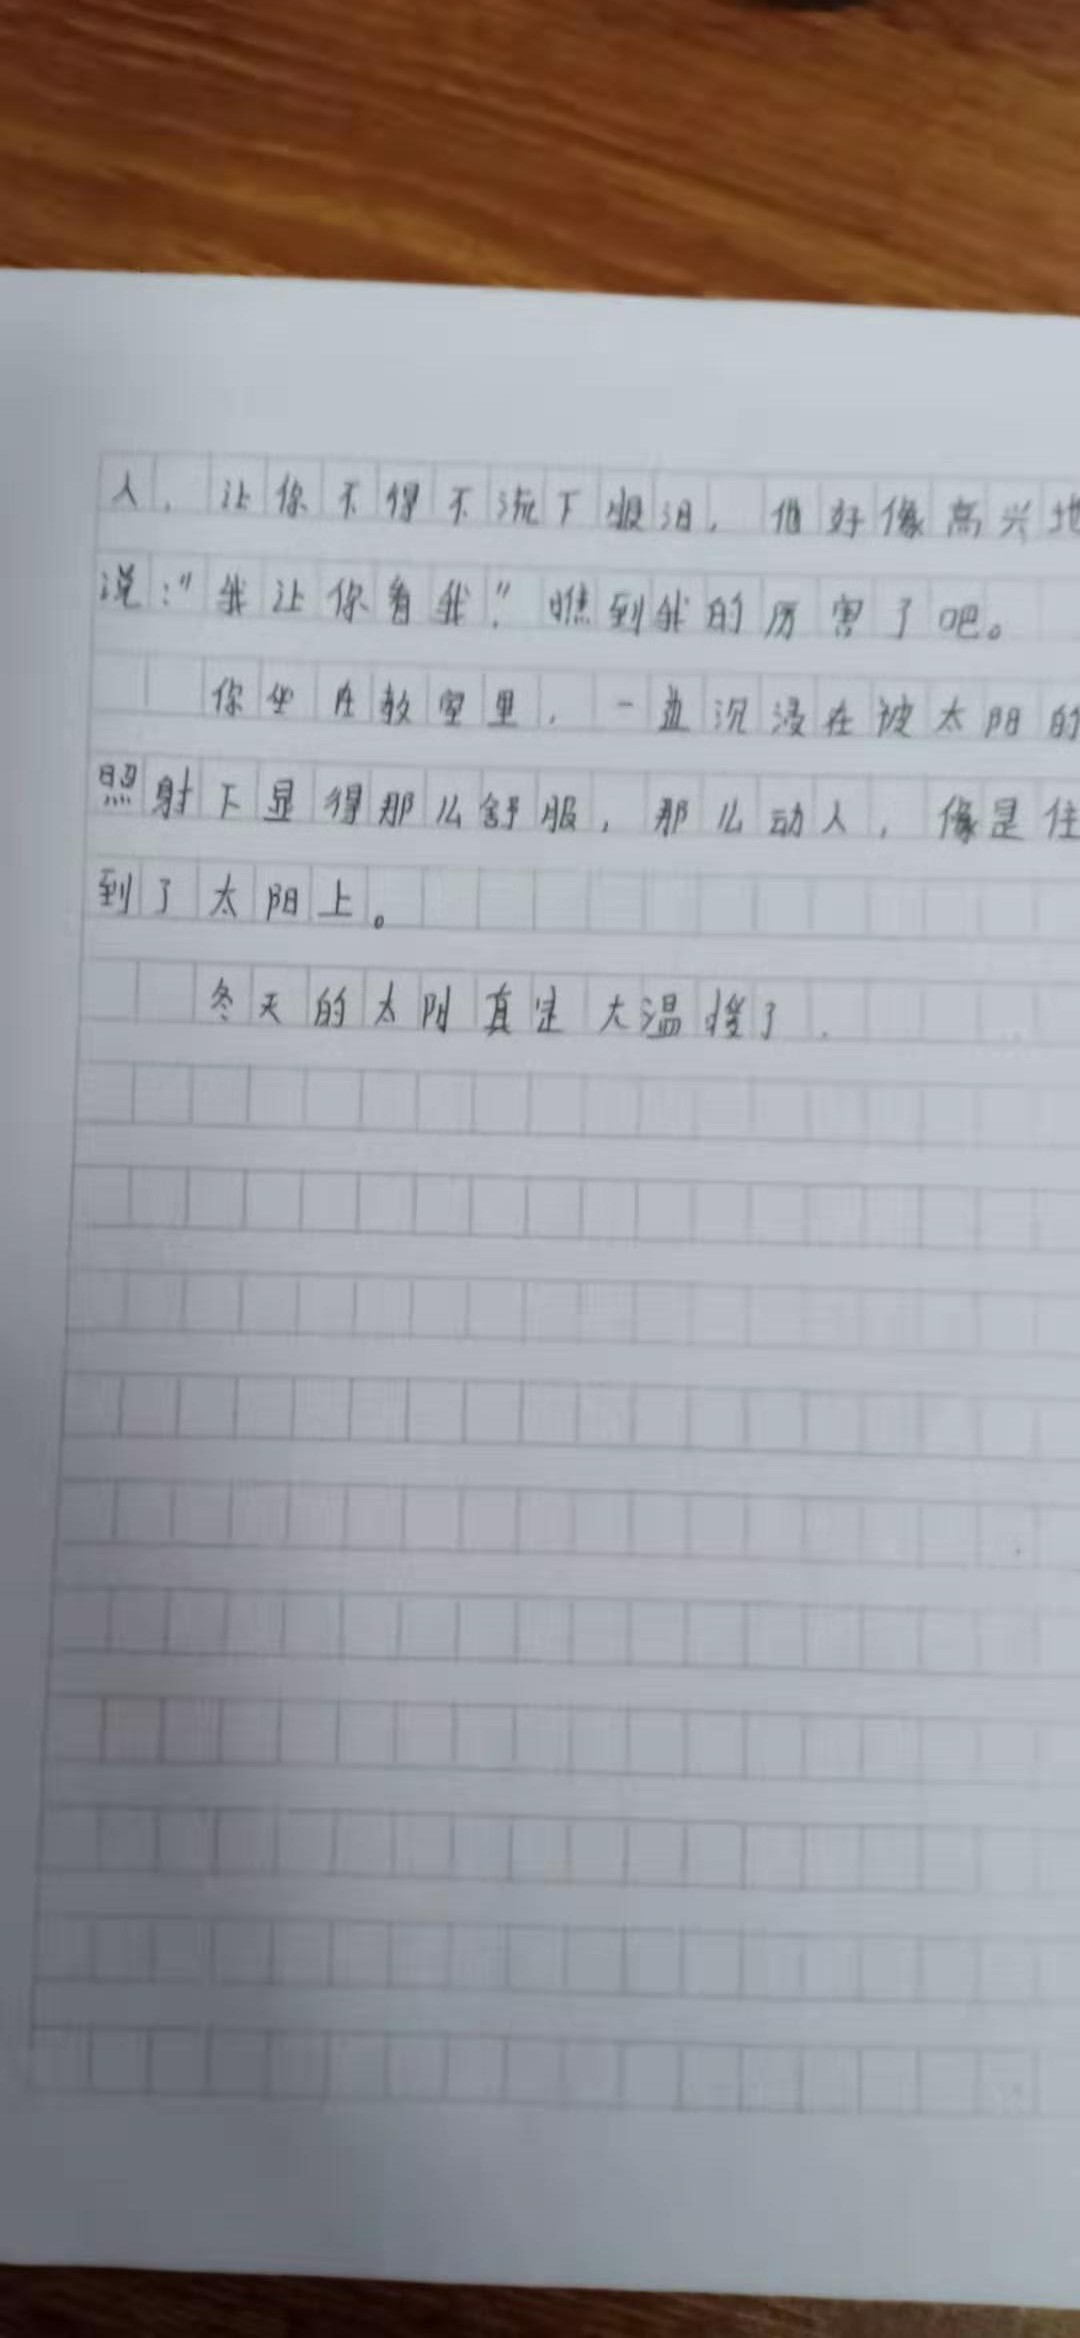 人，让你不得不流下眼泪，他好像高兴地
说：“我让你看我”．瞧到我的厉害了吧。
你坐在教室里，一直沉浸在被太阳的
照射下显得那么舒服，那么动人，像是住
到了太阳上。
冬天的太阳真是太温暖了．